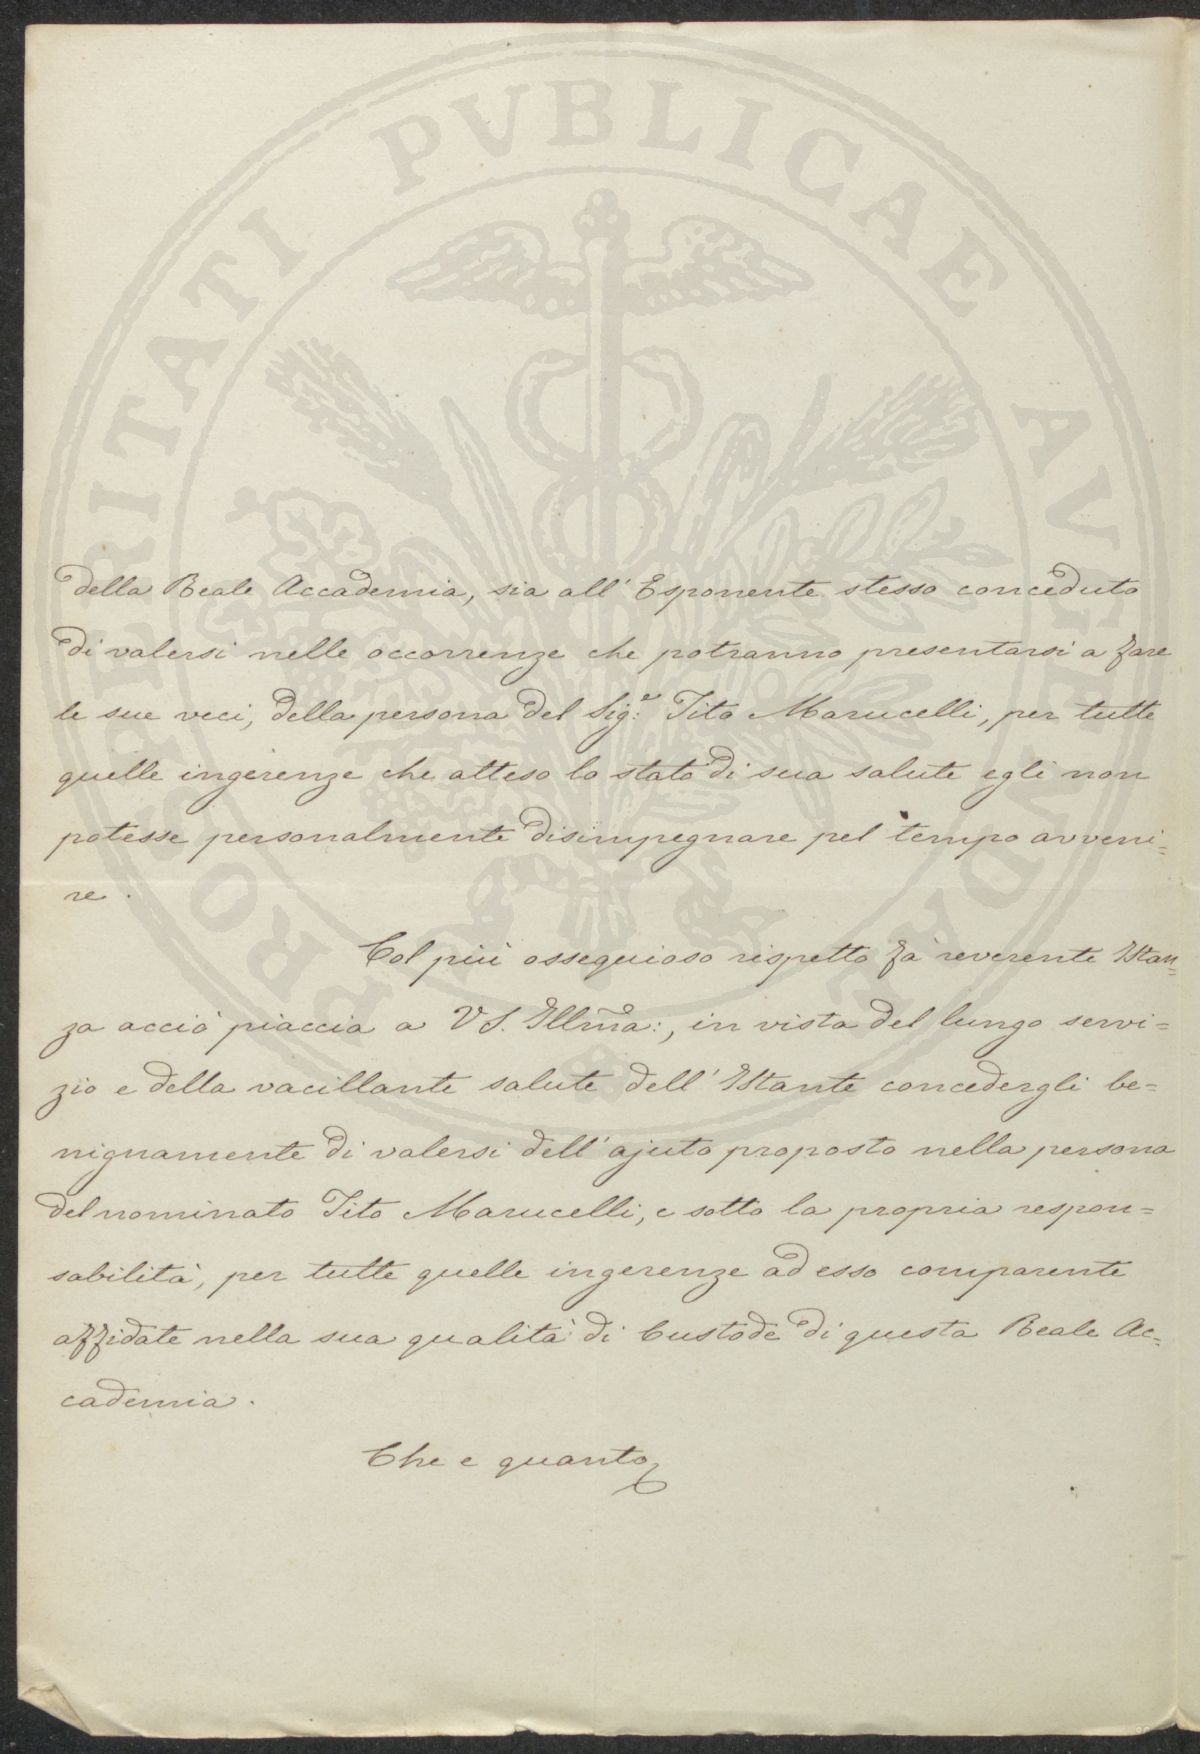 della Reale Accademia, sia all' Esponente stesso conceduto
di valersi nelle occorrenze che potranno presentarsi a fare
le sue veci, della persona del Sig.e Tito Marucelli, per tutte
quelle ingerenze che atteso lo stato di sua salute egli non
potesse personalmente disimpegnare pel tempo avveni=
re.
Col più ossequioso rispetto fà reverente Istan=
za acciò piaccia a VS. Illma:, in vista del lungo servi=
zio e della vacillante salute dell' Istante concedergli be=
nignamente di valersi dell' ajuto proposto nella persona
del nominato Tito Marucelli, e sotto la propria respon=
sabilità, per tutte quelle ingerenze ad esso comparente
affidate nella sua qualità di Custode di questa Reale Ac=
cademia.
Che e quanto
PROSPERITATI PVBLICAE AVGENDAE